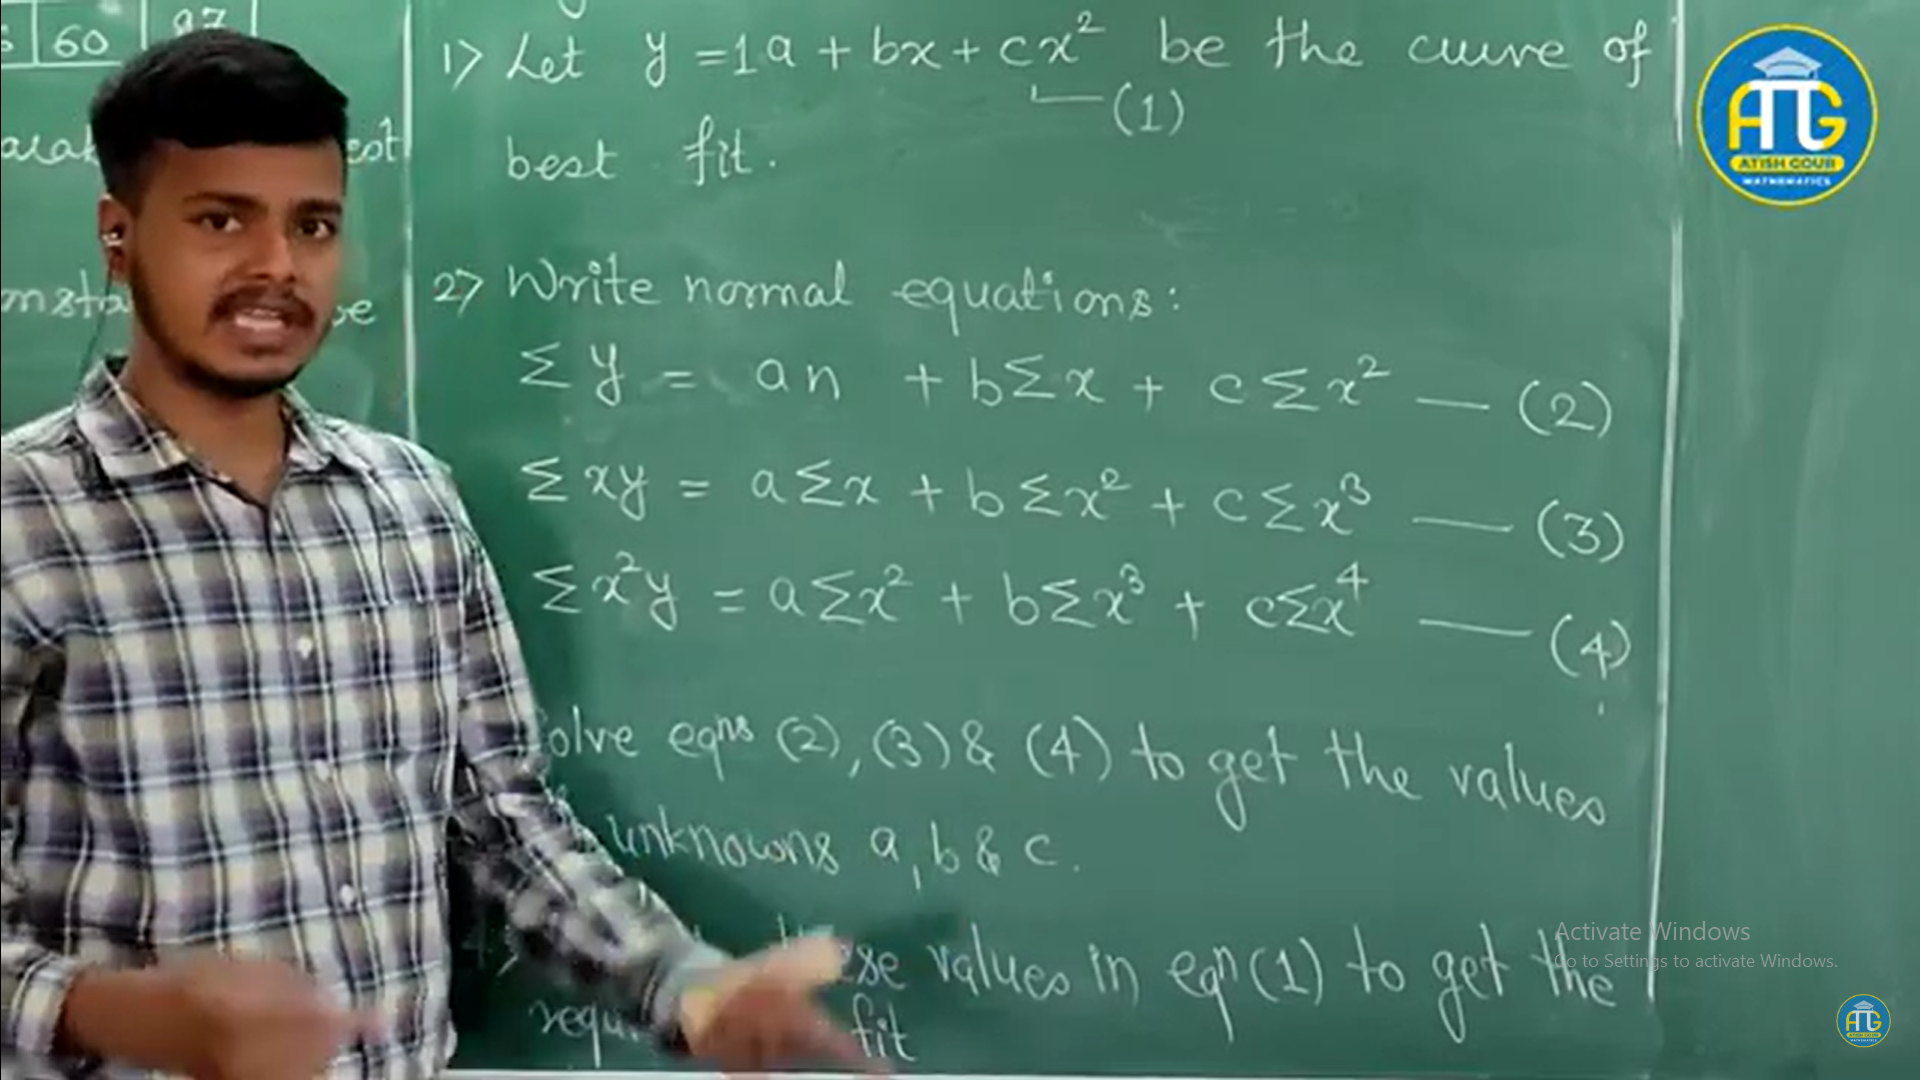 60
97
1) Let y = 1a + bx + cx² be the curve of
(1)
best fit.
2) Write normal equations:
Σy = an + bΣx + cΣx² — (2)
Σxy = aΣx + bΣx² + cΣx³ — (3)
Σx²y = aΣx² + bΣx³ + cΣx⁴ — (4)
olve eqns (2), (3) & (4) to get the values
unknowns a, b & c.
values in eqn (1) to get the
fit
ATG
ATISH GOUR
MATHEMATICS
Activate Windows
Go to Settings to activate Windows.
ATG